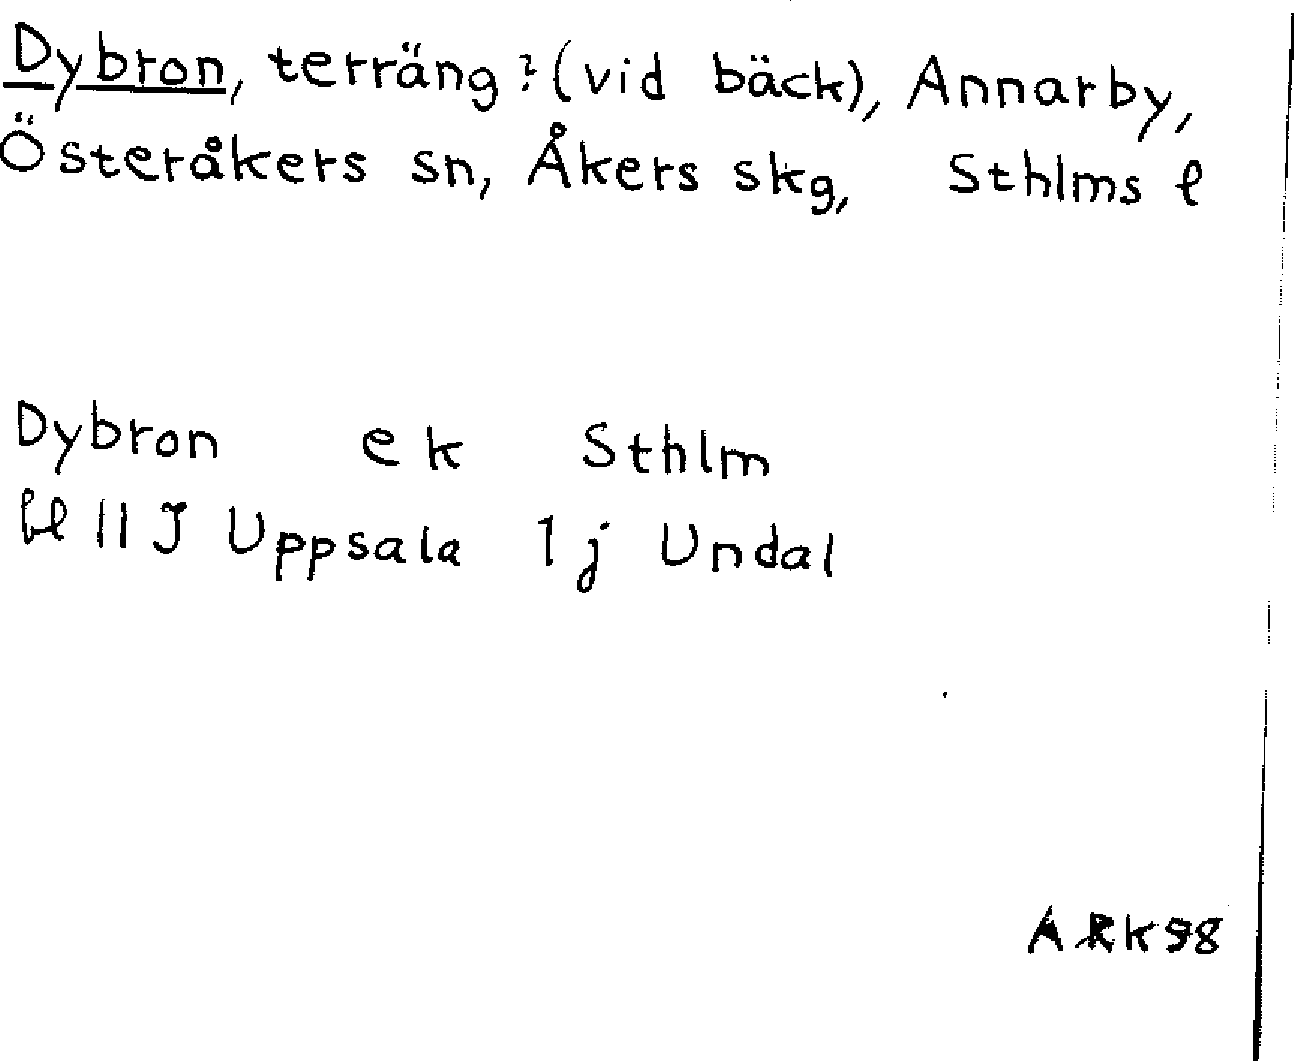 Dybron, terräng? (vid bäck), Annarby,
Österåkers sn, Åkers skg, Sthlms l
Dybron ek Sthlm
bl 11 J Uppsala 1 j Undal